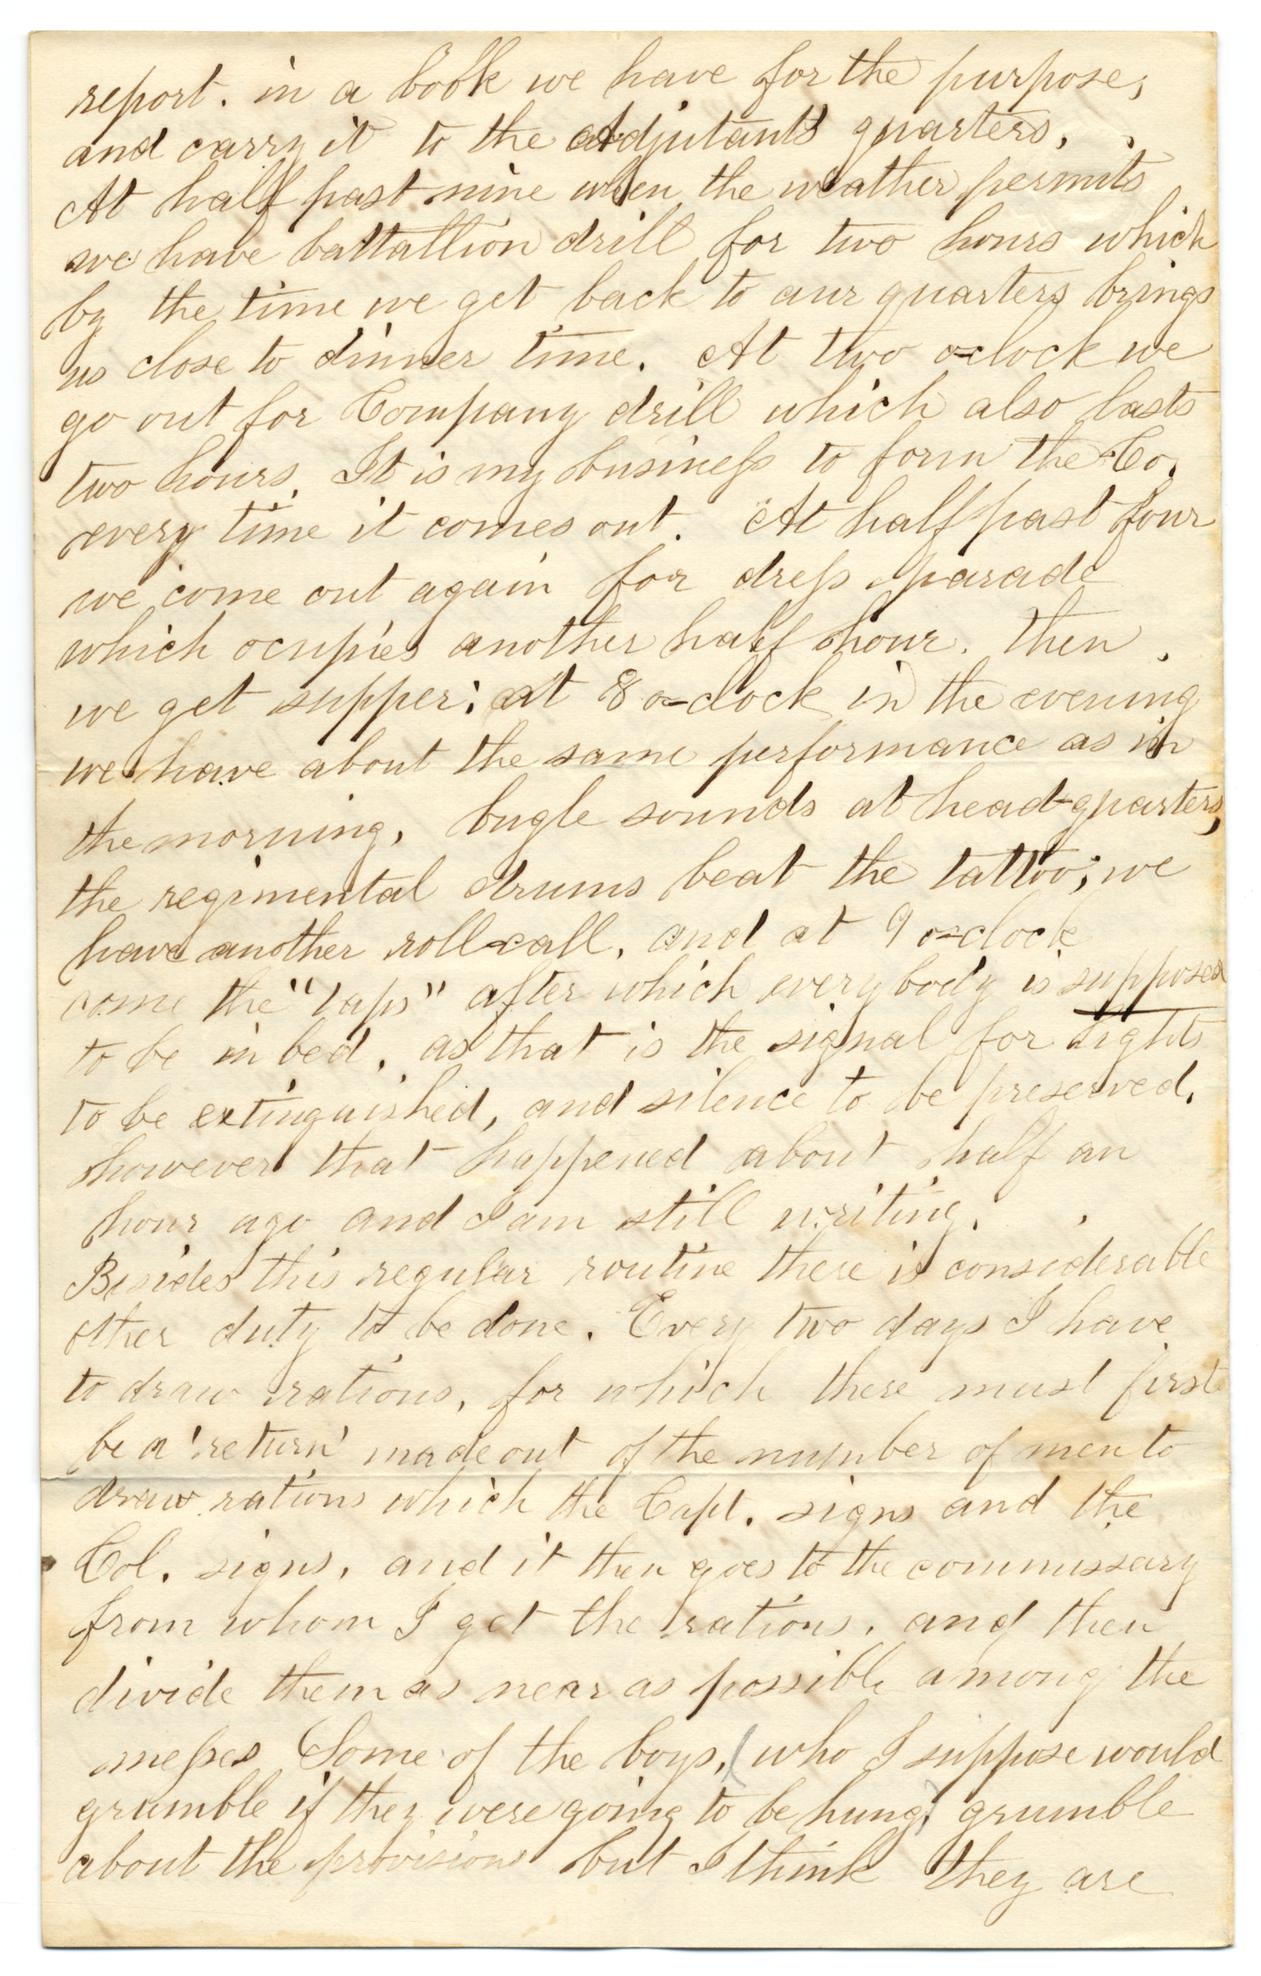 report. in a book we have for the purpose,
and carry it to the adjutants quarters.
At half past nine when the weather permits
we have battallion drill for two hours which
by the time we get back to our quarters brings
us close to dinner time. At two o-clock we
go out for Company drill which also lasts
two hours. It is my business to form the Co.
every time it comes out. At half past four
we come out again for dress parade
which ocupies another half hour. then
we get supper; at 8 o-clock in the evening
we have about the same performance as in
the morning, bugle sounds at head-quarters,
the regimental drums beat the tattoo; we
have another roll-call, and at 9 o-clock
come the "taps" after which everybody is supposed
to be in bed, as that is the signal for lights
to be extinguished, and silence to be preserved.
however that happened about half an
hour ago and I am still writing.
Besides this regular routine there is considerable
other duty to be done. Every two days I have
to draw rations, for which there must first
be a 'return' made out of the number of men to
draw rations which the Capt. signs and the
Col. signs, and it then goes to the commissary
from whom I get the rations, and then
divide them as near as possible among the
messes Some of the boys, (who I suppose would
grumble if they were going to be hung) grumble
about the provisions but I think they are